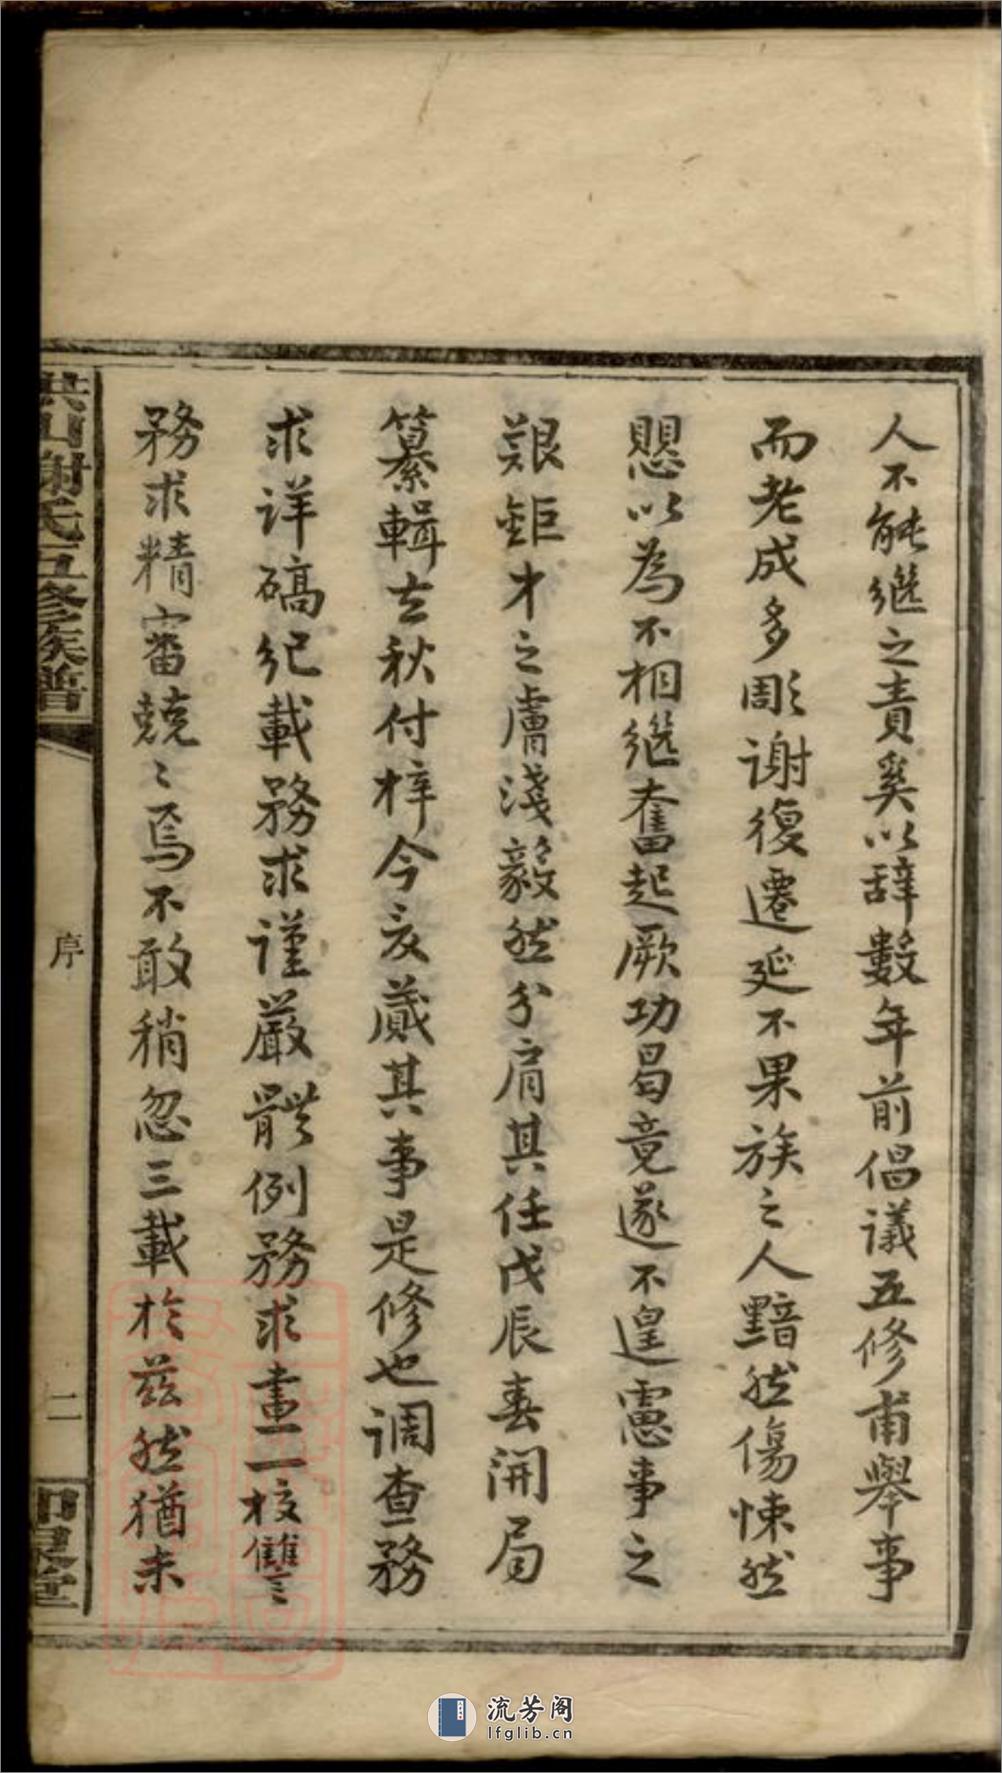 人不能繼之責奚以辭數年前倡議五修甫舉事
而老成多彫謝復遷延不果族之人黯然傷悚然
愳以為不相繼奮起厥功曷竟遂不遑慮事之
艱鉅才之膚淺毅然分肩其任戊辰春開局
纂輯去秋付梓今亥蕆其事是修也調查務
求詳碻紀載務求謹嚴體例務求畫一校讎
務求精審兢〻焉不敢稍忽三載於茲然猶未
洪山謝氏五修族譜
序
二
流芳阁
lfglib.cn